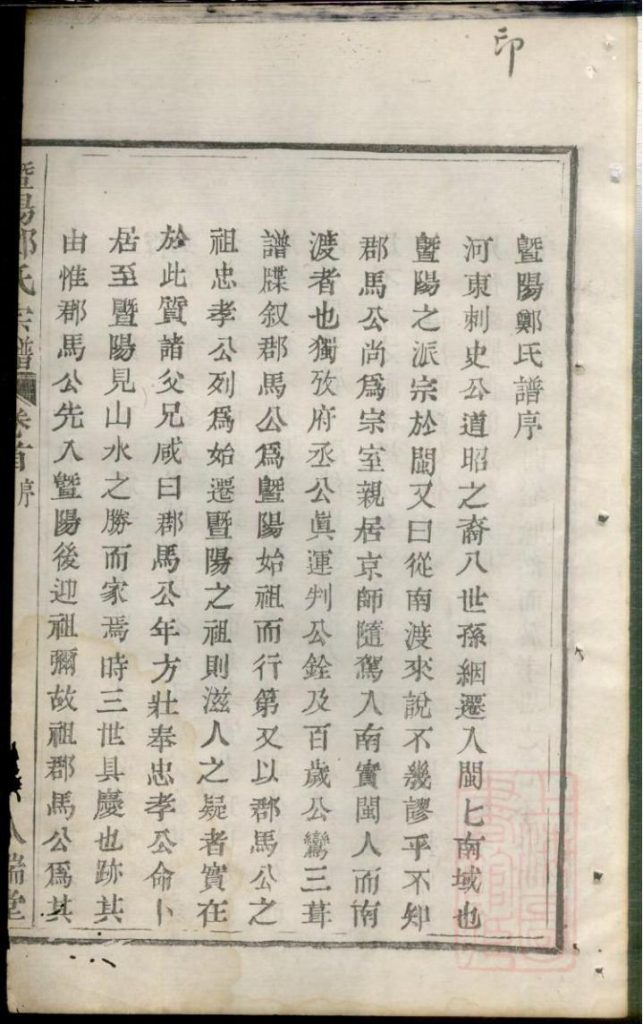 印
暨陽鄭氏譜序
河東刺史公道昭之裔八世孫絪遷入閩閩南域也
暨陽之派宗於閩又曰從南渡來說不幾謬乎不知
郡馬公尚爲宗室親居京師隨駕入南實閩人而南
渡者也獨攷府丞公眞運判公銓及百歲公鸞三葺
譜牒叙郡馬公爲暨陽始祖而行第又以郡馬公之
祖忠孝公列爲始遷暨陽之祖則滋人之疑者實在
於此質諸父兄咸曰郡馬公年方壯奉忠孝公命卜
居至暨陽見山水之勝而家焉時三世具慶也跡其
由惟郡馬公先入暨陽後迎祖彌故祖郡馬公爲其
暨陽鄭氏宗譜 卷首 序 八瑞堂